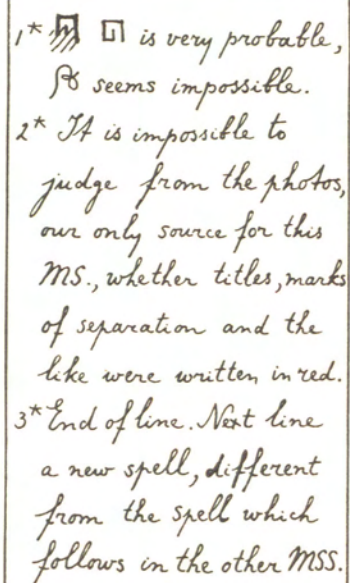 1* 𓉔 is very probable,
seems impossible.
2* It is impossible to
judge from the photos,
our only source for this
MS., whether titles, marks
of separation and the
like were written in red.
3* End of line. Next line
a new spell, different
from the spell which
follows in the other MSS.